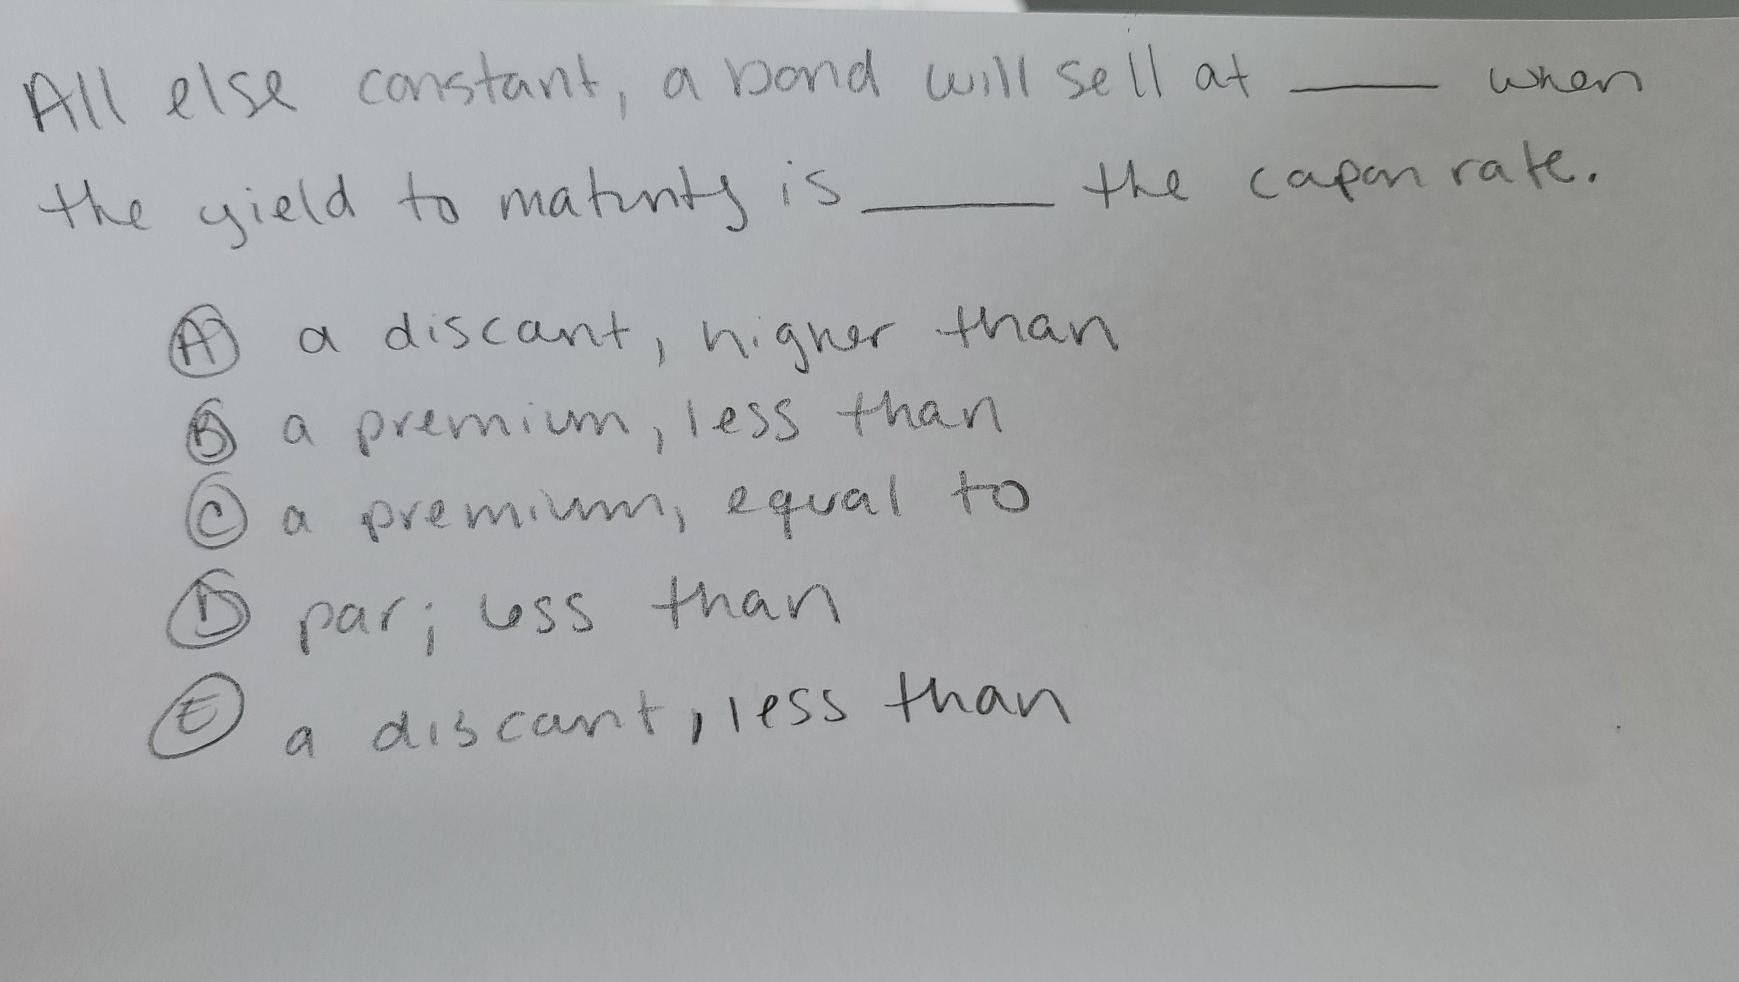 All else constant, a bond will sell at ____ when
the yield to maturity is ____ the coupon rate.
(A) a discount, higher than
(B) a premium, less than
(C) a premium, equal to
(D) par; less than
(E) a discount, less than